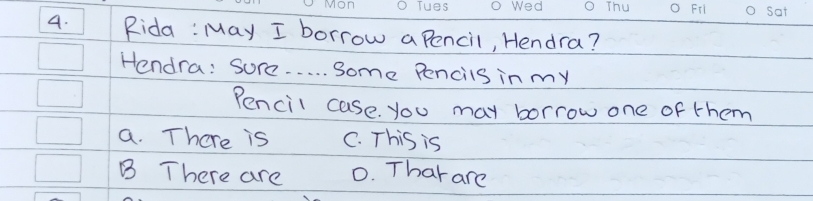 Mon Tues Wed Thu Fri Sat
4. Rida : May I borrow a Pencil, Hendra?
Hendra : Sure ..... Some Pencils in my
Pencil case. You may borrow one of them
a. There is C. This is
B There are D. That are